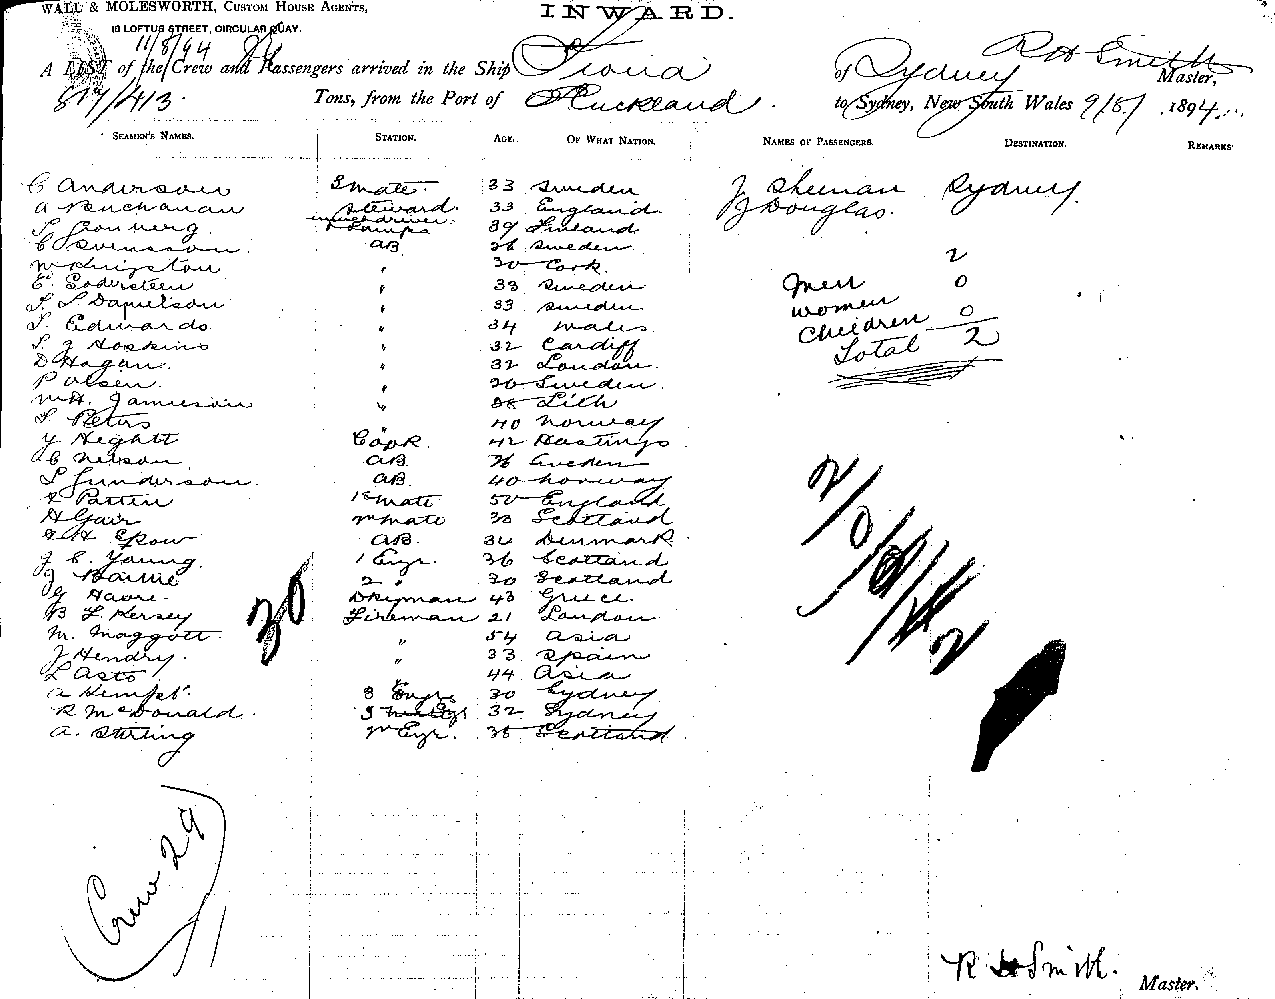 WALL & MOLESWORTH, CUSTOM HOUSE AGENTS,
19 LOFTUS STREET, CIRCULAR QUAY.
INWARD.
11/8/94
A LIST of the Crew and Passengers arrived in the Ship Fiona of Sydney R H Smith Master,
817/413. Tons, from the Port of Auckland to Sydney, New South Wales 9/8/ 1894
SEAMEN'S NAMES. STATION. AGE. OF WHAT NATION. NAMES OF PASSENGERS. DESTINATION. REMARKS
C Anderson 3 mate 33 Sweden J Sheenan Sydney
A Buchanan Steward 33 England J Douglas.
winchdriver
& Lamps 39 Finland
C Svensson AB 26 Sweden 2
W Kingston " 30 Cork Men 0
E. Sodersteen " 33 Sweden women 0
S. S Danielson " 33 Sweden Children 0
S. Edwards " 34 Wales Total 2
S. J Hopkins " 32 Cardiff
D Hogan " 32 London
P Olsen " 20 Sweden
W. H. Jamieson " Lith
S Peters " 40 Norway
Y Heghtt Cook 42 Hastings
C Nelson AB 26 Sweden
S Gunderson AB 40 Norway
Patten 1st mate 50 England
H Gair 2nd mate 38 Scotland
H Spow AB. 32 Denmark
J C. Young 1 Engr. 36 Scotland
J Bairne 2 " 30 Scotland
G Havre Dkeyman 43 Greece
B L Kersey Fireman 21 London
M. Maggott " 54 Asia
J Hendry " 33 Spain
L Asto " 44 Asia
A Kempt 3 Engr 30 Sydney
R McDonald 32 Sydney
A. Stirling 2nd Engr. 38 Scotland
30
2/0/0/2
Crew 29
R H Smith. Master.